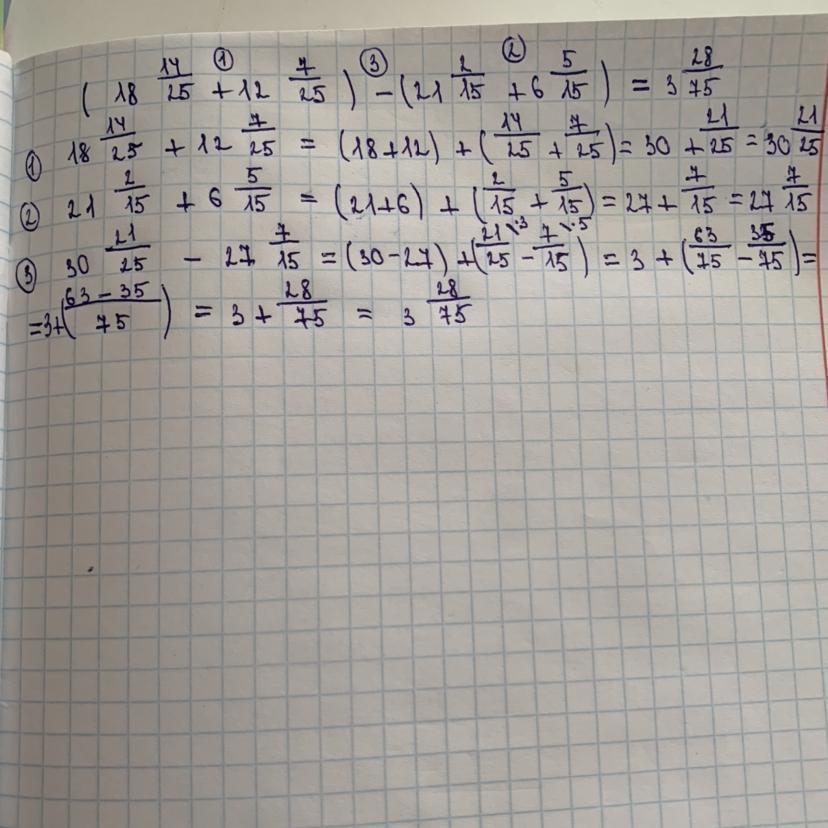 (18 14/25 + 12 7/25) - (21 2/15 + 6 5/15) = 3 28/75
① 18 14/25 + 12 7/25 = (18+12) + (14/25 + 7/25) = 30 + 21/25 = 30 21/25
② 21 2/15 + 6 5/15 = (21+6) + (2/15 + 5/15) = 27 + 7/15 = 27 7/15
③ 30 21/25 - 27 7/15 = (30-27) + (21/25 \·3 - 7/15 \·5) = 3 + (63/75 - 35/75) =
= 3 + (63-35/75) = 3 + 28/75 = 3 28/75